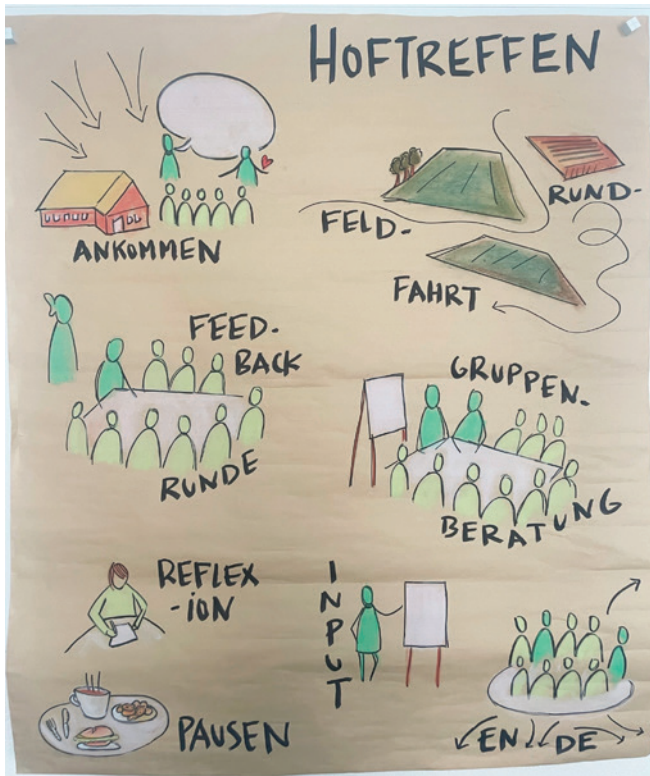 HOFTREFFEN
ANKOMMEN
FELD-
RUND-
FAHRT
FEED-
BACK
RUNDE
GRUPPEN-
BERATUNG
REFLEX
-iON
INPUT
PAUSEN
EN
DE